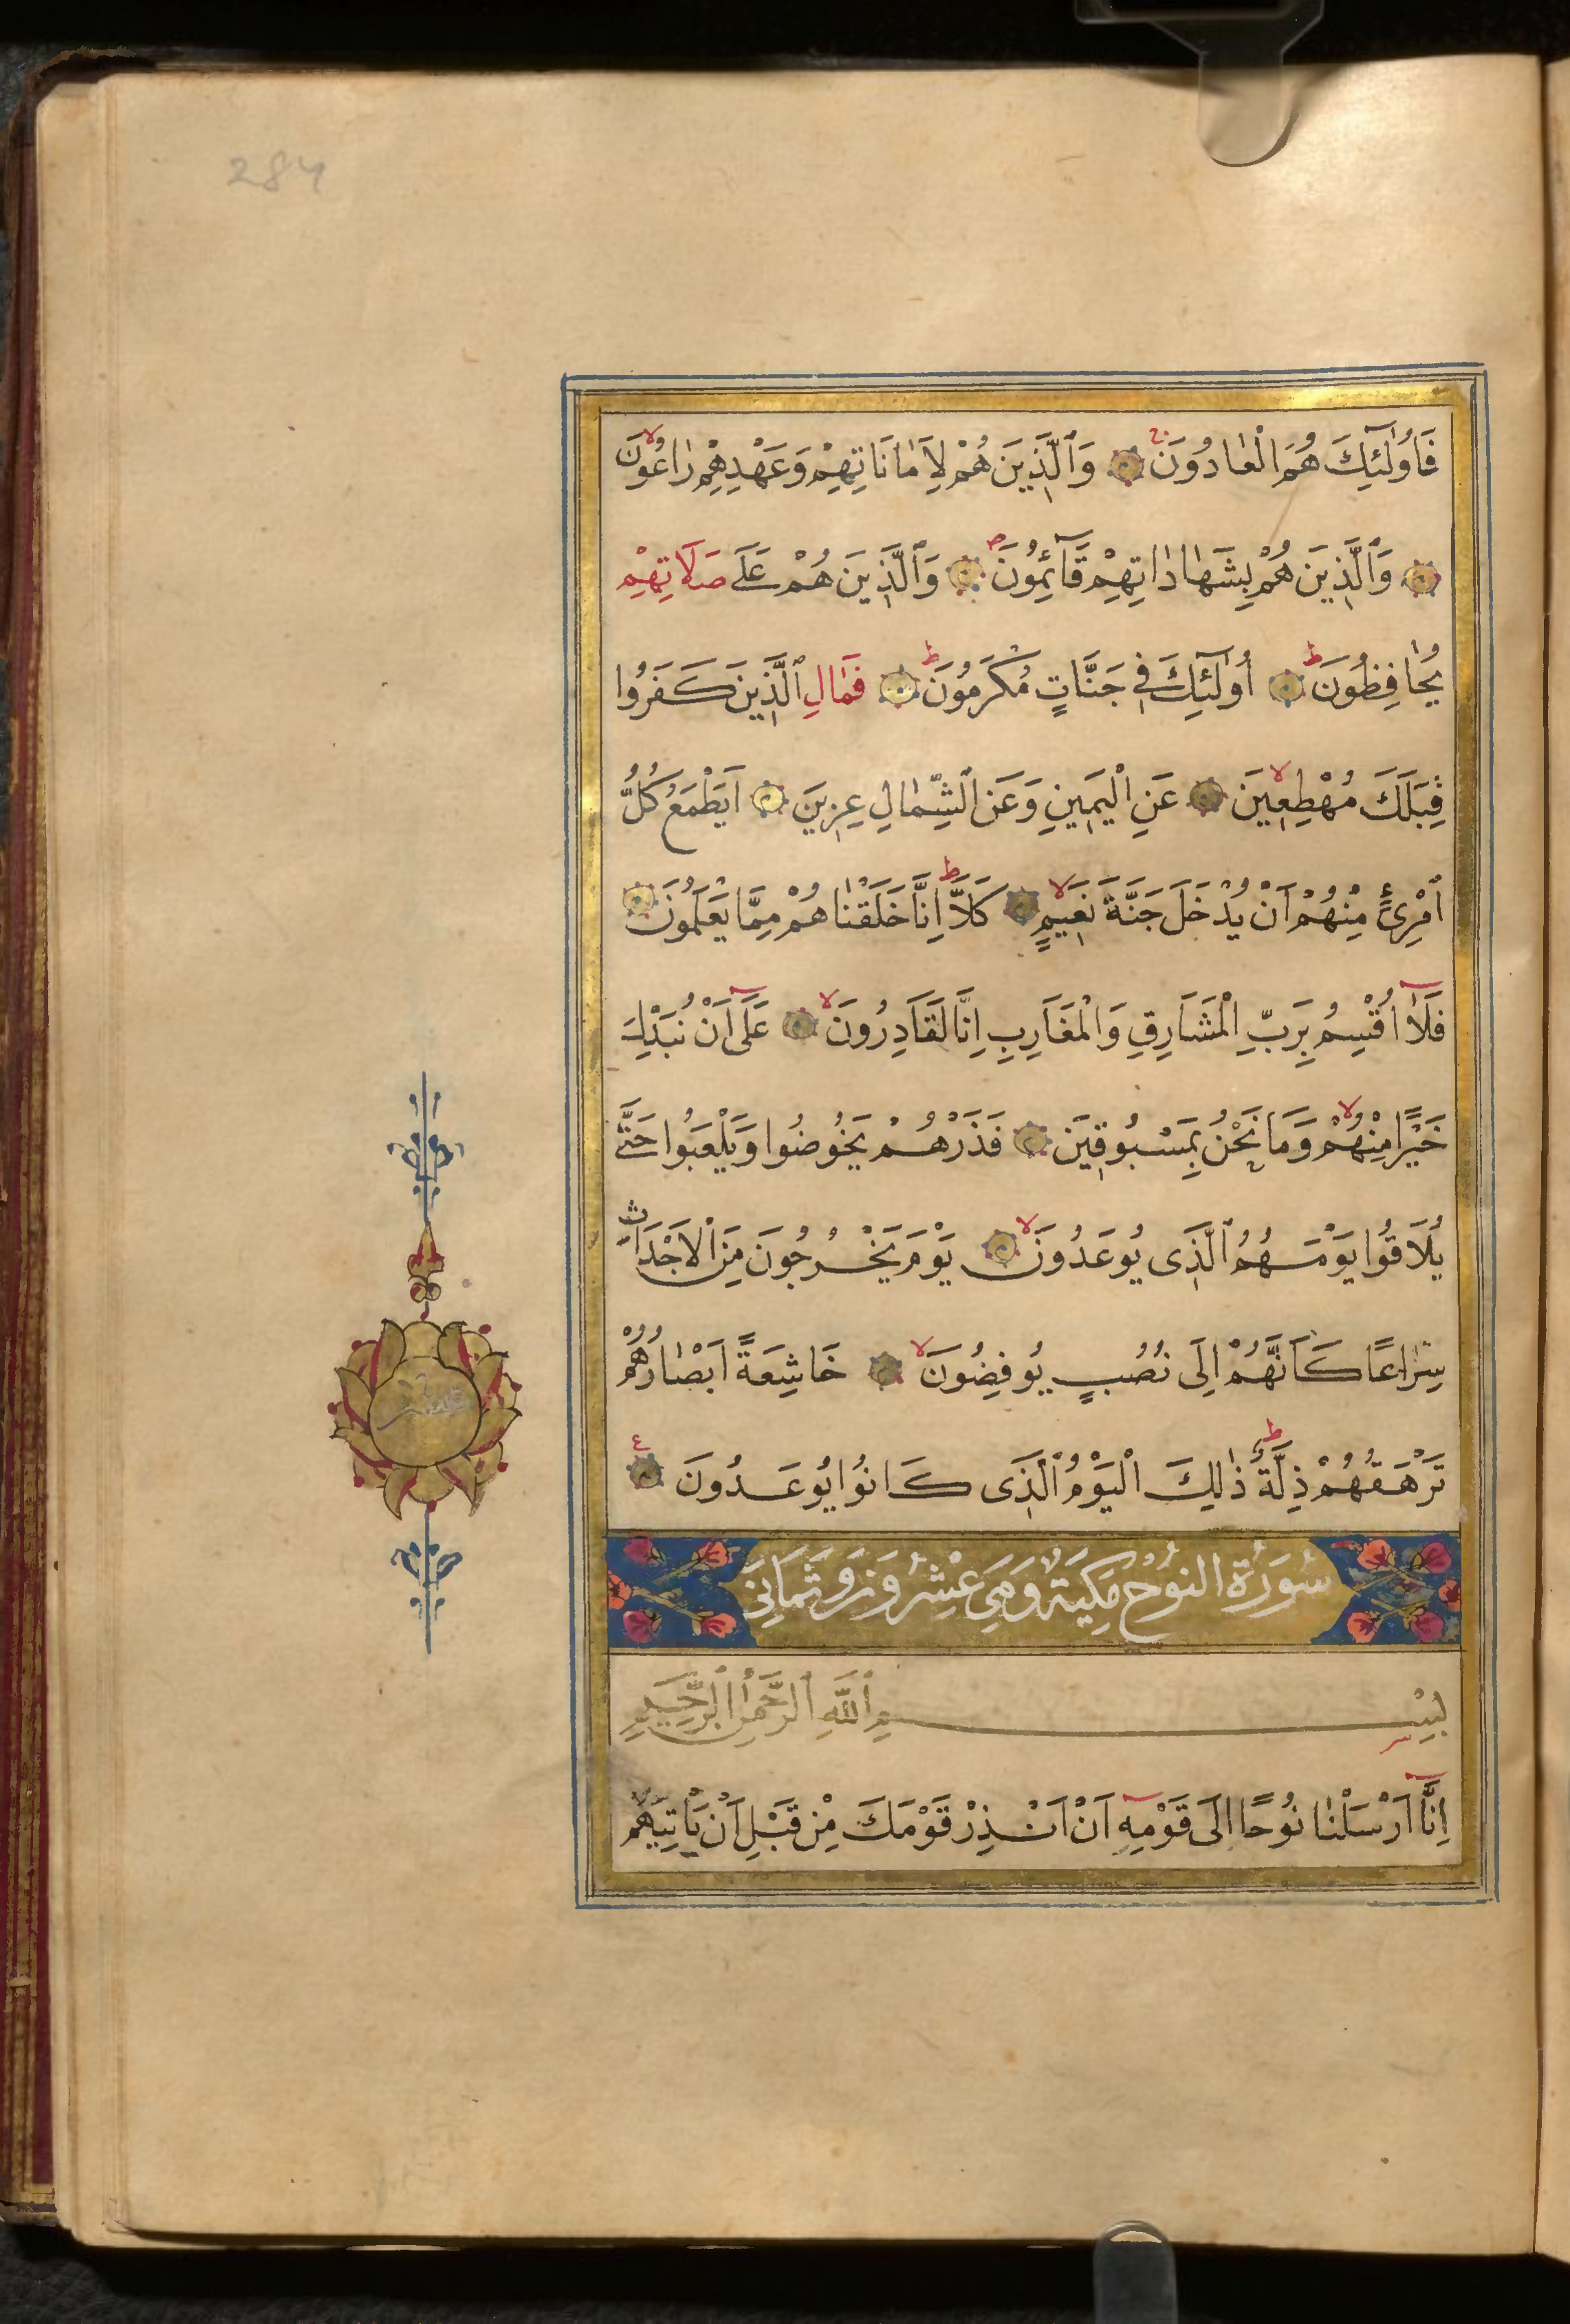 284
فَاُولٰٓئِكَ هُمُ الْعَادُونَ ۝ وَالَّذِينَ هُمْ لِاَمَانَاتِهِمْ وَعَهْدِهِمْ رَاعُونَ
۝ وَالَّذِينَ هُمْ بِشَهَادَاتِهِمْ قَآئِمُونَ ۝ وَالَّذِينَ هُمْ عَلَى صَلَاتِهِمْ
يُحَافِظُونَ ۝ اُولٰٓئِكَ فِي جَنَّاتٍ مُكْرَمُونَ ۝ فَمَالِ الَّذِينَ كَفَرُوا
قِبَلَكَ مُهْطِعِينَ ۝ عَنِ الْيَمِينِ وَعَنِ الشِّمَالِ عِزِينَ ۝ اَيَطْمَعُ كُلُّ
امْرِئٍ مِنْهُمْ اَنْ يُدْخَلَ جَنَّةَ نَعِيمٍ ۝ كَلَّا اِنَّا خَلَقْنَاهُمْ مِمَّا يَعْلَمُونَ ۝
فَلَآ اُقْسِمُ بِرَبِّ الْمَشَارِقِ وَالْمَغَارِبِ اِنَّا لَقَادِرُونَ ۝ عَلَىٓ اَنْ نُبَدِّلَ
خَيْرًا مِنْهُمْ وَمَا نَحْنُ بِمَسْبُوقِينَ ۝ فَذَرْهُمْ يَخُوضُوا وَيَلْعَبُوا حَتَّى
يُلَاقُوا يَوْمَهُمُ الَّذِى يُوعَدُونَ ۝ يَوْمَ يَخْرُجُونَ مِنَ الْاَجْدَاثِ
سِرَاعًا كَاَنَّهُمْ اِلَى نُصُبٍ يُوفِضُونَ ۝ خَاشِعَةً اَبْصَارُهُمْ
تَرْهَقُهُمْ ذِلَّةٌ ذٰلِكَ الْيَوْمُ الَّذِى كَانُوا يُوعَدُونَ ۝ ع
سُورَةُ النوُح مَكِيَة وَهِيَ عِشْرُونَ وَثَمَانِيَ
بِسْمِ اللّٰهِ الرَّحْمٰنِ الرَّحِيمِ
اِنَّآ اَرْسَلْنَا نُوحًا اِلَى قَوْمِهٓ اَنْ اَنْذِرْ قَوْمَكَ مِنْ قَبْلِ اَنْ يَاْتِيَهُمْ